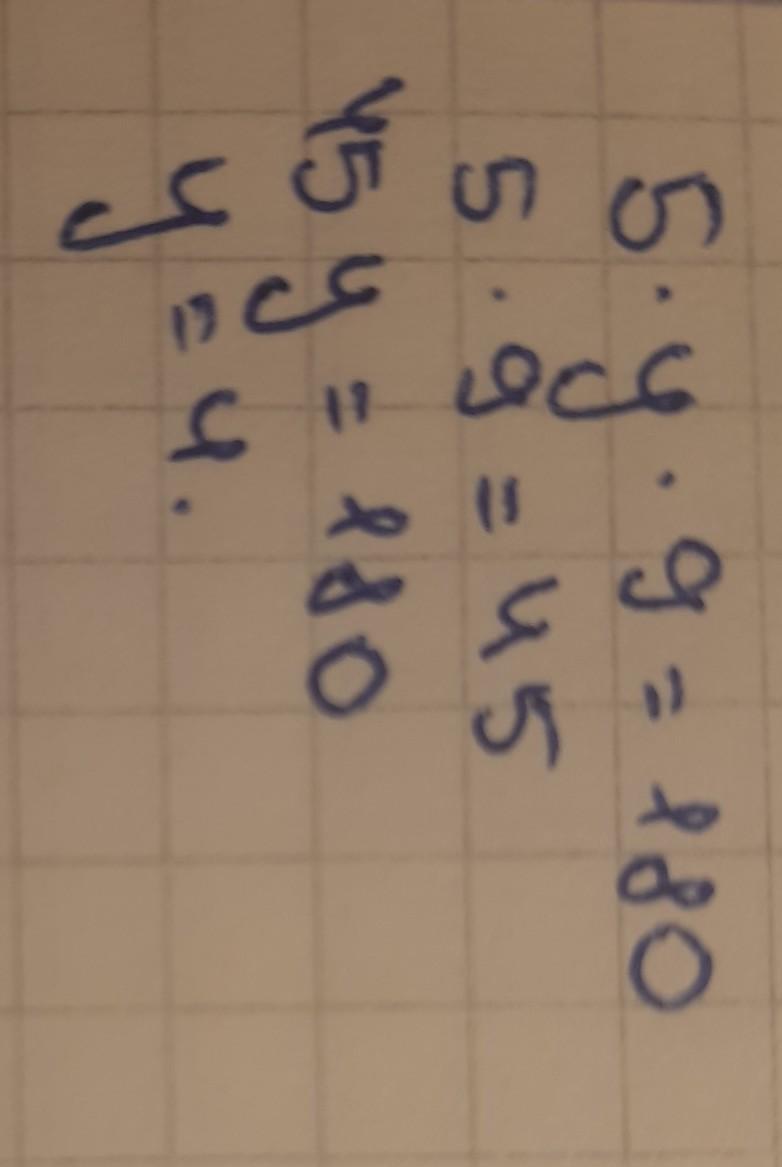 5 · y · 9 = 180
5 · 9 = 45
45 y = 180
y = 4.